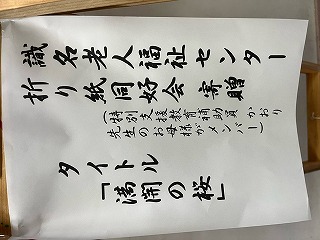 識名老人福祉センター
折り紙同好会 寄贈
(特別支援教育補助員かおり
先生のお母様がメンバー)
タイトル
「満開の桜」